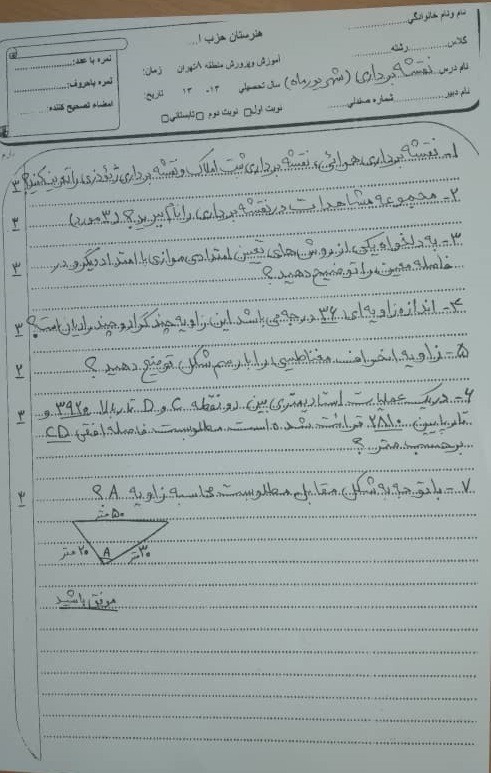 نام ونام خانوادگی:
هنرستان حزب ا...
کلاس: رشته
آموزش وپرورش منطقه ۸تهران زمان:
نمره با عدد:
نام درس: نقشه برداری (شهریورماه) سال تحصیلی ۱۳- ۱۳ تاریخ:
نمره باحروف:
نام دبیر: شماره صندلی
نوبت اول نوبت دوم تابستانی
امضاء تصحیح کننده:
۱- نقشه برداری هوائی، نقشه برداری ثبت املاک و نقشه برداری ژئودزی را تعریف کنید؟ ۳
۲- مجموعه مشاهدات در نقشه برداری را نام ببرید؟ (۳ مورد) ۳
۳- به دلخواه یکی از روش های تعیین امتدادی موازی با امتداد دیگر و در
فاصله معین را توضیح دهید؟ ۳
۴- اندازه زاویه ای ۳۶ درجه می باشد این زاویه چند گراد و چند رادیان است؟ ۳
۵- زاویه انحراف مغناطیسی را با رسم شکل توضیح دهید؟ ۲
۶- در یک عملیات استادیمتری بین دو نقطه C و D تار بالا ۳۹۲۰ و
تار پایین ۲۸۱۰ قرائت شده است مطلوبست فاصله افقی CD
برحسب متر؟ ۳
۷- با توجه به شکل مقابل مطلوبست محاسبه زاویه A ؟ ۳
۵۰ متر
۲۰ متر
A
۳۰ متر
موفق باشید